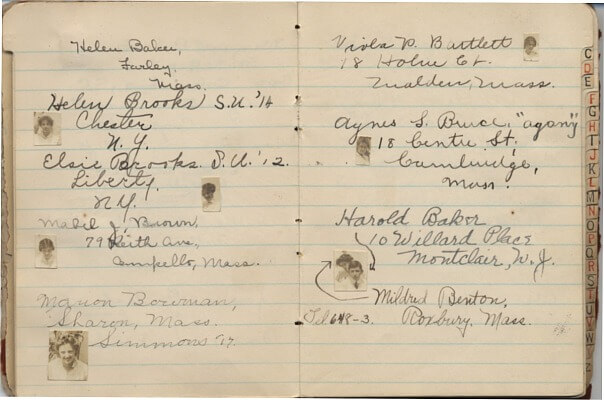 Helen Baker,
Farley,
Mass.
Helen Brooks S.U. '14
Chester
N.Y.
Elsie Brooks. S.U. '12.
Liberty,
N.Y.
Mabel J. Brown,
79 Keith Ave.,
Campello, Mass.
Marion Bowman,
Sharon, Mass.
Simmons '17.
Viola P. Bartlett
18 Holm Ct.
Malden, Mass.
Agnes S. Bruce, "agony"
18 Centre St.
Cambridge,
Mass.
Harold Baker
10 Willard Place
Montclair, N.J.
Mildred Benton,
Tel 648-3. Roxbury, Mass.
C
D
E
F
G
H
I
J
K
L
M
N
O
P
Q
R
S
T
U
V
W